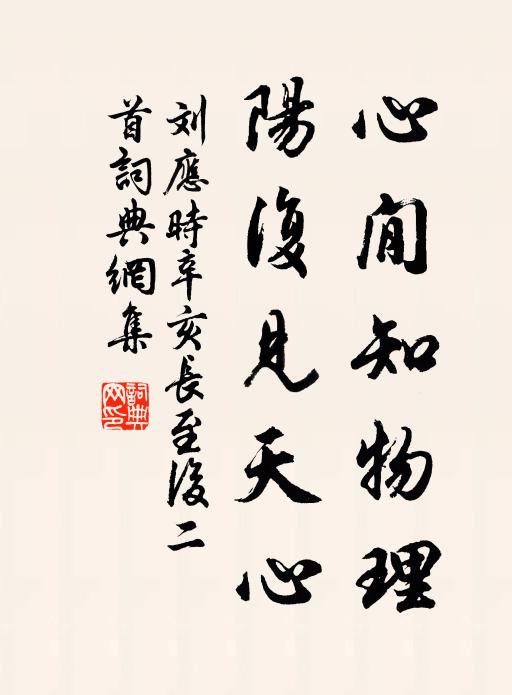 心閒知物理
陽復見天心
刘應時辛亥長至後二
首詞典網集
詞典網印